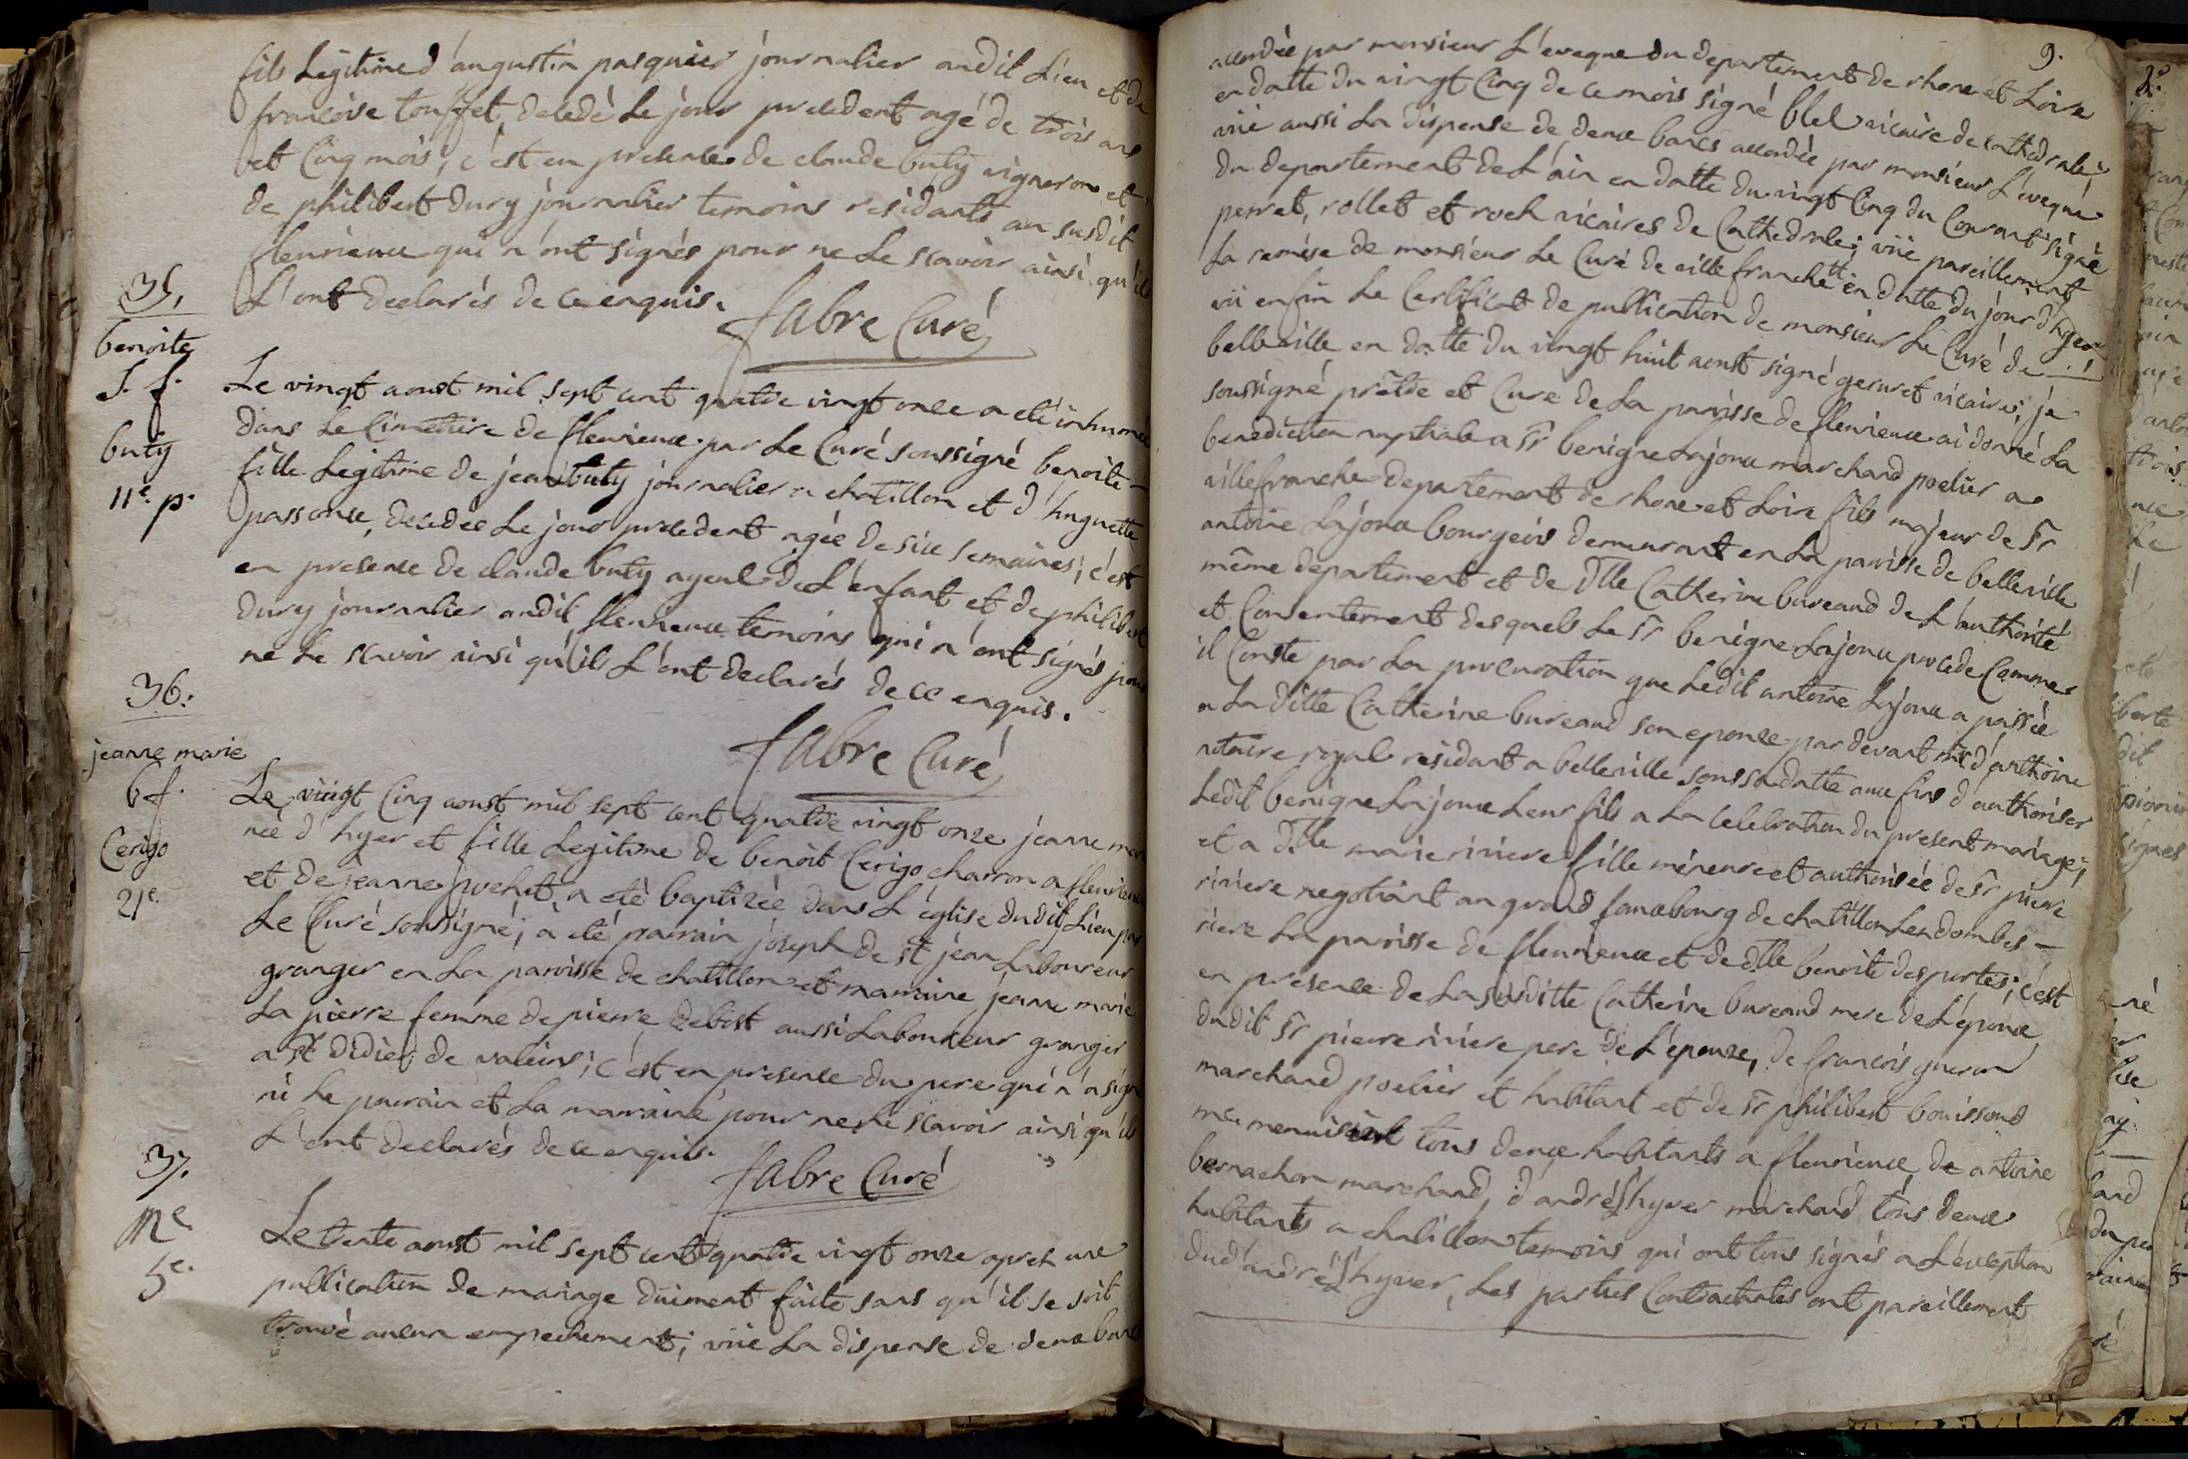 fils Légitime d'augustin pasquier journalier audit Lieu et de
francoise touffet, decedé Le jour precedent agé de trois ans
et Cinq mois, c'est en presence de claude buty vigneron et
de philibert Dury journalier temoins residants au susdit
fleurieux qui n'ont signés pour ne Le scavoir ainsi qu'ils
L'ont declarés de ce enquis.
fabre Curé
35.
benoite
S. f.
buty
11e p.
Le vingt aoust mil sept cent quatre vingt onze a eté inhumée
dans Le Cimetiere de fleurieux par Le Curé soussigné benoite
fille Legitime de jean buty journalier a chatillon et d'huguette
passonse, decedée Le jour precedent agée de six semaines; c'est
en presence de claude buty ayeul de L'enfant et de philibert
Dury journalier audit fleurieux temoins qui n'ont signés pour
ne Le scavoir ainsi qu'ils L'ont declarés de ce enquis.
fabre Curé
36.
jeanne marie
b f.
Cerigo
21e.
Le vingt Cinq aoust mil sept cent quatre vingt onze jeanne marie
née d'hyer et fille Legitime de benoit Cerigo charron a fleurieux
et de jeanne pochet, a eté baptizée dans L'église dudit Lieu par
Le Curé soussigné; a eté parrain joseph de st jean Laboureur
granger en La paroisse de chatillon et marraine jeanne marie
La pierre femme de pierre debost aussi Laboureur granger
a st didier de valeins; c'est en presence du pere qui n'a signé
ni Le parrain et La marraine pour ne Le scavoir ainsi qu'ils
L'ont declarés de ce enquis.
fabre Curé
37.
Me
5e.
Le trente aoust mil sept cent quatre vingt onze apres une
publication de mariage düement faite sans qu'il se soit
trouvé aucun empechement; vüe La dispense de deux bancs
9.
accordée par monsieur L'eveque du departement de rhone et Loire
en datte du vingt Cinq de ce mois signé vicaire de cathedrale;
vüe aussi La dispense de deux bancs accordée par monsieur L'eveque
du departement de L'ain en datte du vingt Cinq du Courant signé
perret, rollet et roch vicaires de Cathedrale; vüe pareillement
La remise de monsieur Le Curé de ville franche en datte du jour d'hyer
vü enfin Le Certificat de publication de monsieur Le Curé de
belleville en datte du vingt huit aoust signé geruret vicaire; je
soussigné prêtre et Curé de La paroisse de fleurieux ai donné La
benediction nuptiale a Sr benigne Lajoux marchand poelier a
villefranche departement de rhone et Loire fils majeur de Sr
antoine Lajoux bourgeois demeurant en La paroisse de belleville
même departement et de Dlle Catherine bureaud de L'authorité
et Consentement desquels Le Sr benigne Lajoux procede Comme
il Conste par La procuration que Ledit antoine Lajoux a passée
a La ditte Catherine bureaud son epouze par devant me d'anthoine
notaire royal residant a belleville sous sa datte aux fins d'authoriser
Ledit benigne Lajoux Leur fils a La Celebration du present mariage;
et a Dlle marie riviere fille mineure et authorisée de Sr pierre
riviere negotiant au grand fauxbourg de chatillon Les dombes
riere La paroisse de fleurieux et de dlle benoite desportes; c'est
en presence de La susditte Catherine bureaud mere de L'epoux
dudit Sr pierre riviere pere de L'epouze, de francois gueron
marchand poelier et habitant et de Sr philibert bouissoud
me menuisier tous deux habitants a fleurieux, de antoine
bernachon marchand, d'andré Lhyver marchand tous deux
habitants a chatillon temoins qui ont tous signés a L'exception
dud andré Lhyver, Les parties Contractantes ont pareillement